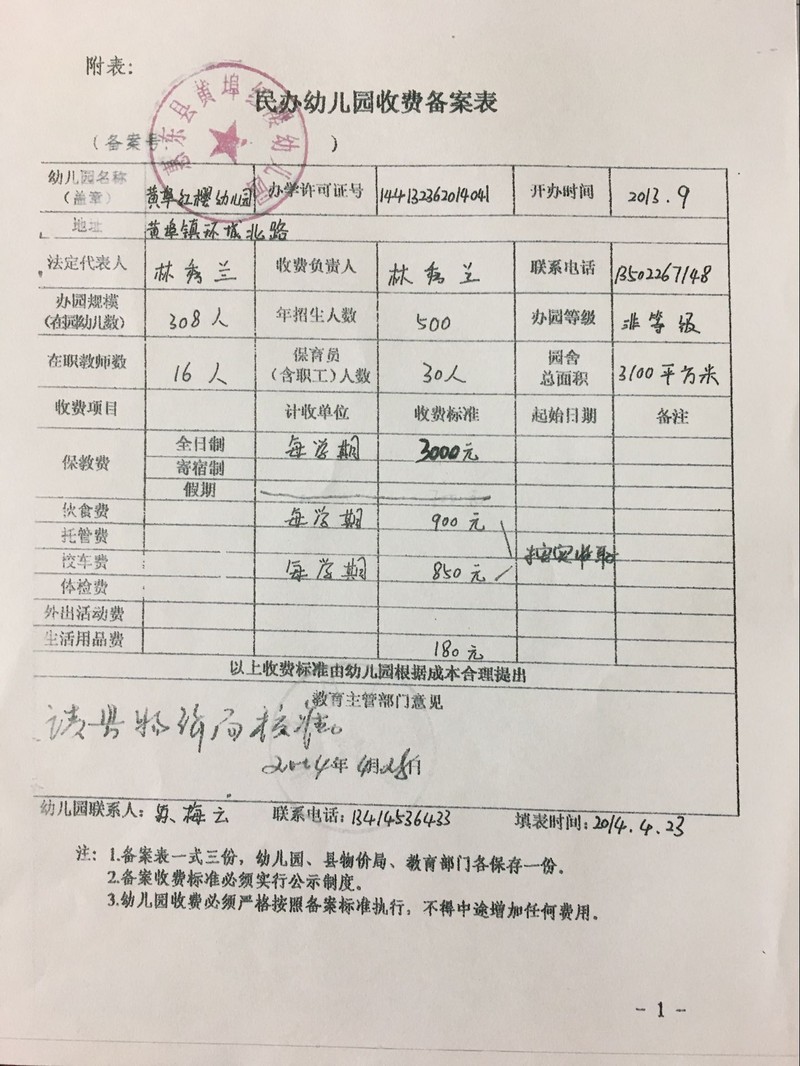 附表:
民办幼儿园收费备案表
(备案号 )
惠东县黄埠红樱幼儿园
幼儿园名称(盖章) 黄埠红樱幼儿园 办学许可证号 144132362014041 开办时间 2013.9
地址 黄埠镇环城北路
法定代表人 林秀兰 收费负责人 林秀兰 联系电话 13502267148
办园规模(在园幼儿数) 308人 年招生人数 500 办园等级 非等级
在职教师数 16人 保育员(含职工)人数 30人 园舍总面积 3100平方米
收费项目 计收单位 收费标准 起始日期 备注
保教费 全日制 每学期 3000元
寄宿制
假期
伙食费 每学期 900元
托管费
校车费 每学期 850元
体检费
外出活动费
生活用品费 180元
以上收费标准由幼儿园根据成本合理提出
教育主管部门意见
请县物价局核准。
2014年4月28日
幼儿园联系人: 梅云 联系电话:13414536433 填表时间:2014.4.23
注: 1.备案表一式三份,幼儿园、县物价局、教育部门各保存一份。
2.备案收费标准必须实行公示制度。
3.幼儿园收费必须严格按照备案标准执行,不得中途增加任何费用。
- 1 -